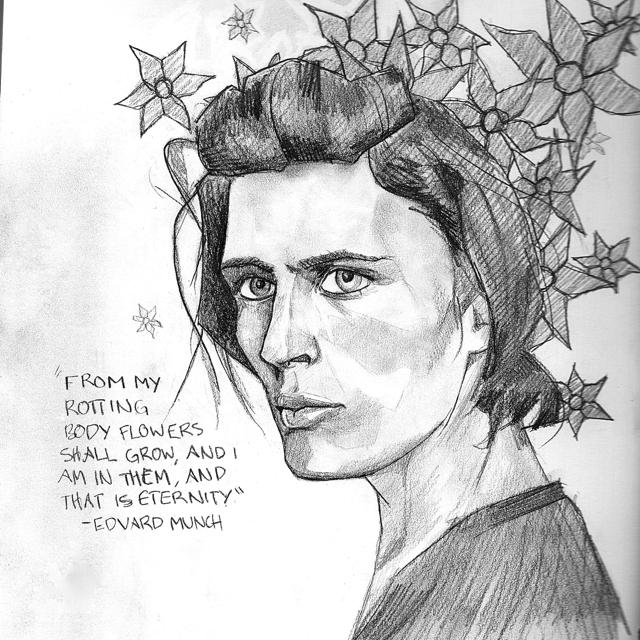 "FROM MY
ROTTING
BODY FLOWERS
SHALL GROW, AND I
AM IN THEM, AND
THAT IS ETERNITY."
-EDVARD MUNCH